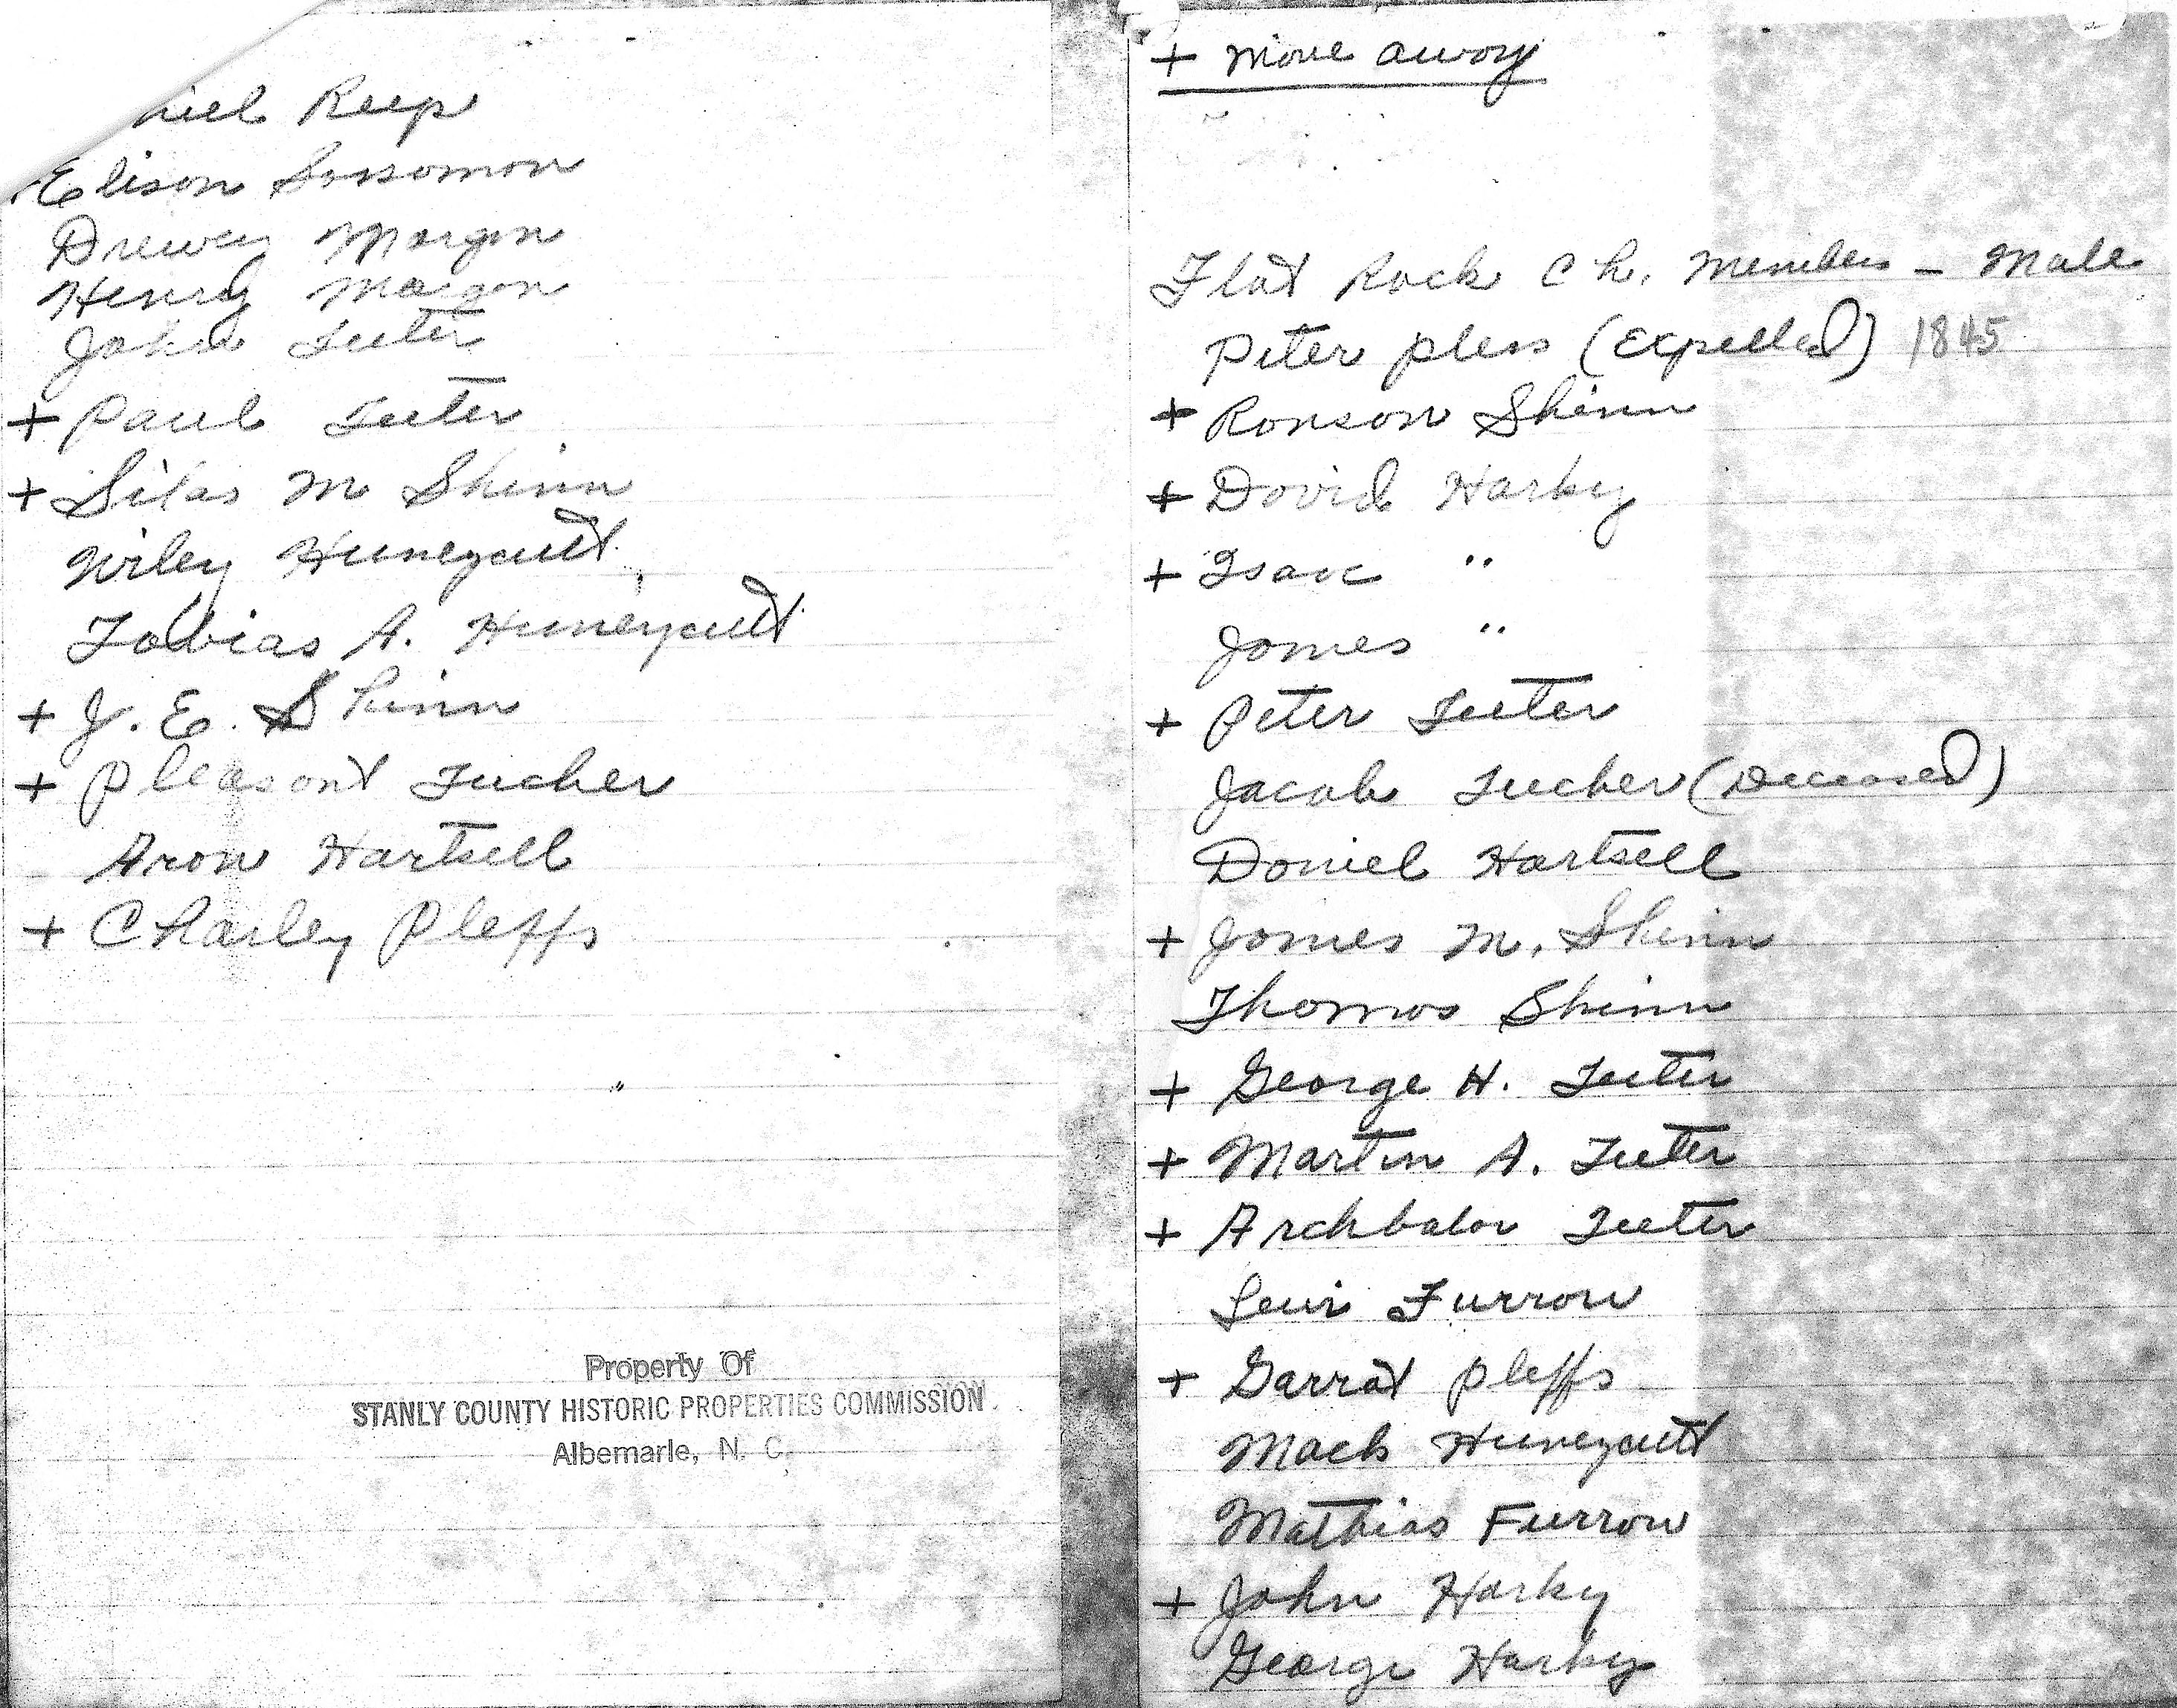 niel Reep
Elison Sossomon
Drewey Morgon
Henry Morgon
John Teeter
+ Paul Teeter
+ Silas M Shinn
Wiley Huneycutt
Tobias A. Huneycutt
+ J. E. Shinn
+ Pleasont Tucker
Aron Hartsell
+ Charley Pleffs
Property Of
STANLY COUNTY HISTORIC PROPERTIES COMMISSION
Albemarle, N. C.
+ Move away
Flat Rock Ch. Members - Male
Peter Pless (Expelled) 1845
+ Ronson Shinn
+ David Harky
+ Isaac "
James "
+ Peter Teeter
Jacob Tucker (Deceased)
Daniel Hartsell
+ James M. Shinn
Thomas Shinn
+ George H. Teeter
+ Martin A. Teeter
+ Archbalor Teeter
Levi Furrow
+ Garrat Pleffs
Mack Huneycutt
Mathias Furrow
+ John Harky
George Harky